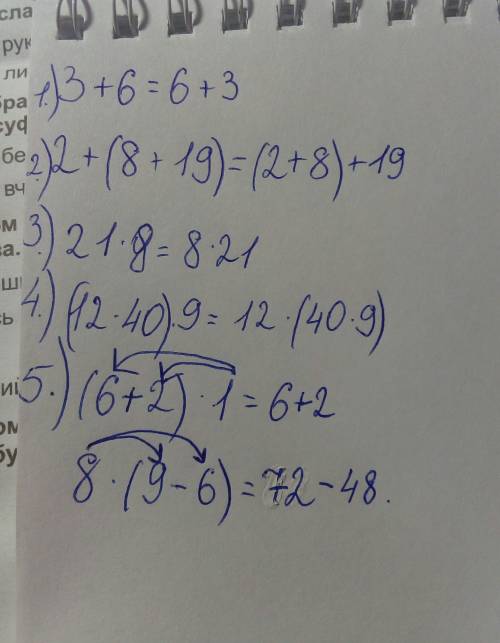 сла
рук
ли
1.) 3 + 6 = 6 + 3
бра
суф
бе
2.) 2 + (8 + 19) = (2 + 8) + 19
вч
ом
3.) 21 · 8 = 8 · 21
ва.
4.) (12 · 40) · 9 = 12 · (40 · 9)
сь
5.) (6 + 2) · 1 = 6 + 2
ом
бу
8 · (9 - 6) = 72 - 48.